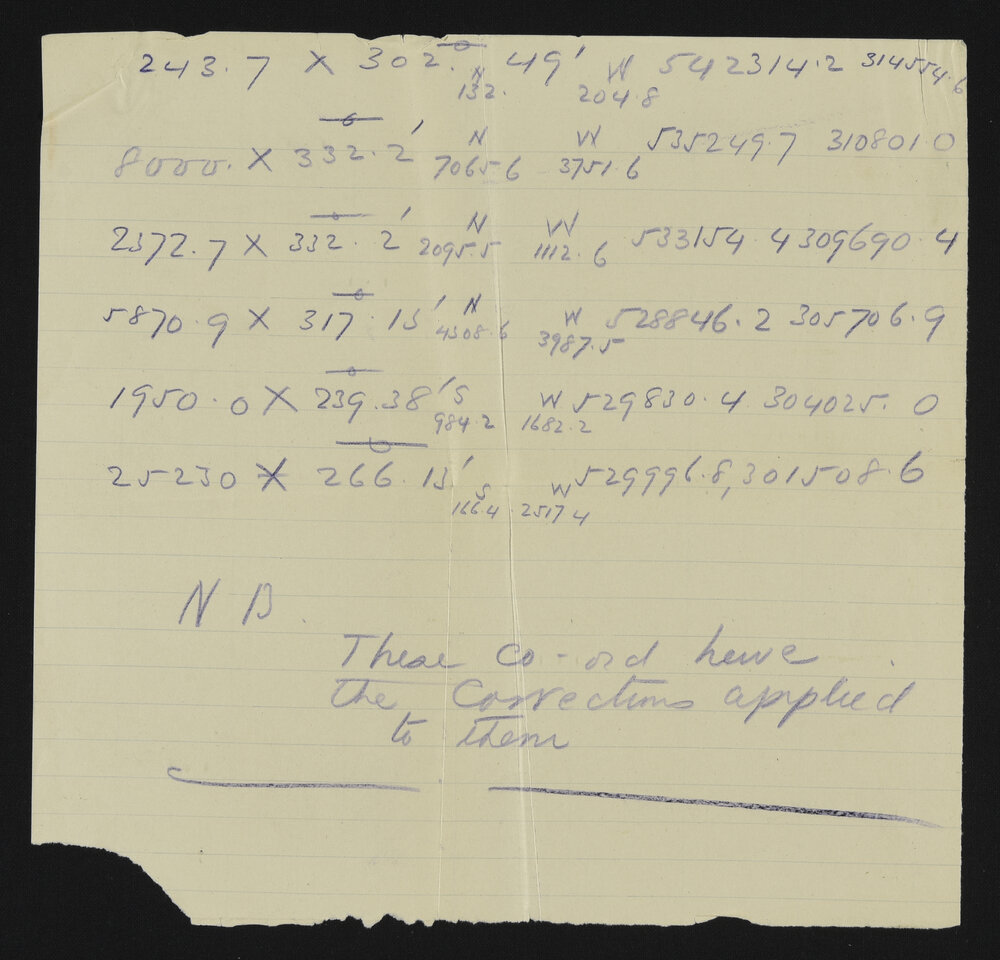 243.7 X 302.° 49' N 132. W 204.8 542314.2 314554.6
8000. X 332.° 2' N 7065.6 W 3751.6 535249.7 310801.0
2372.7 X 332.° 2' N 2095.5 W 1112.6 533154.4 309690.4
5870.9 X 317.° 15' N 4308.6 W 3987.5 528846.2 305706.9
1950.0 X 239.° 38' S 984.2 W 1682.2 529830.4 304025.0
25230 X 266.° 13' S 166.4 W 2517.4 529996.8, 301508.6
N B.
These co-ord have
the corrections applied
to them